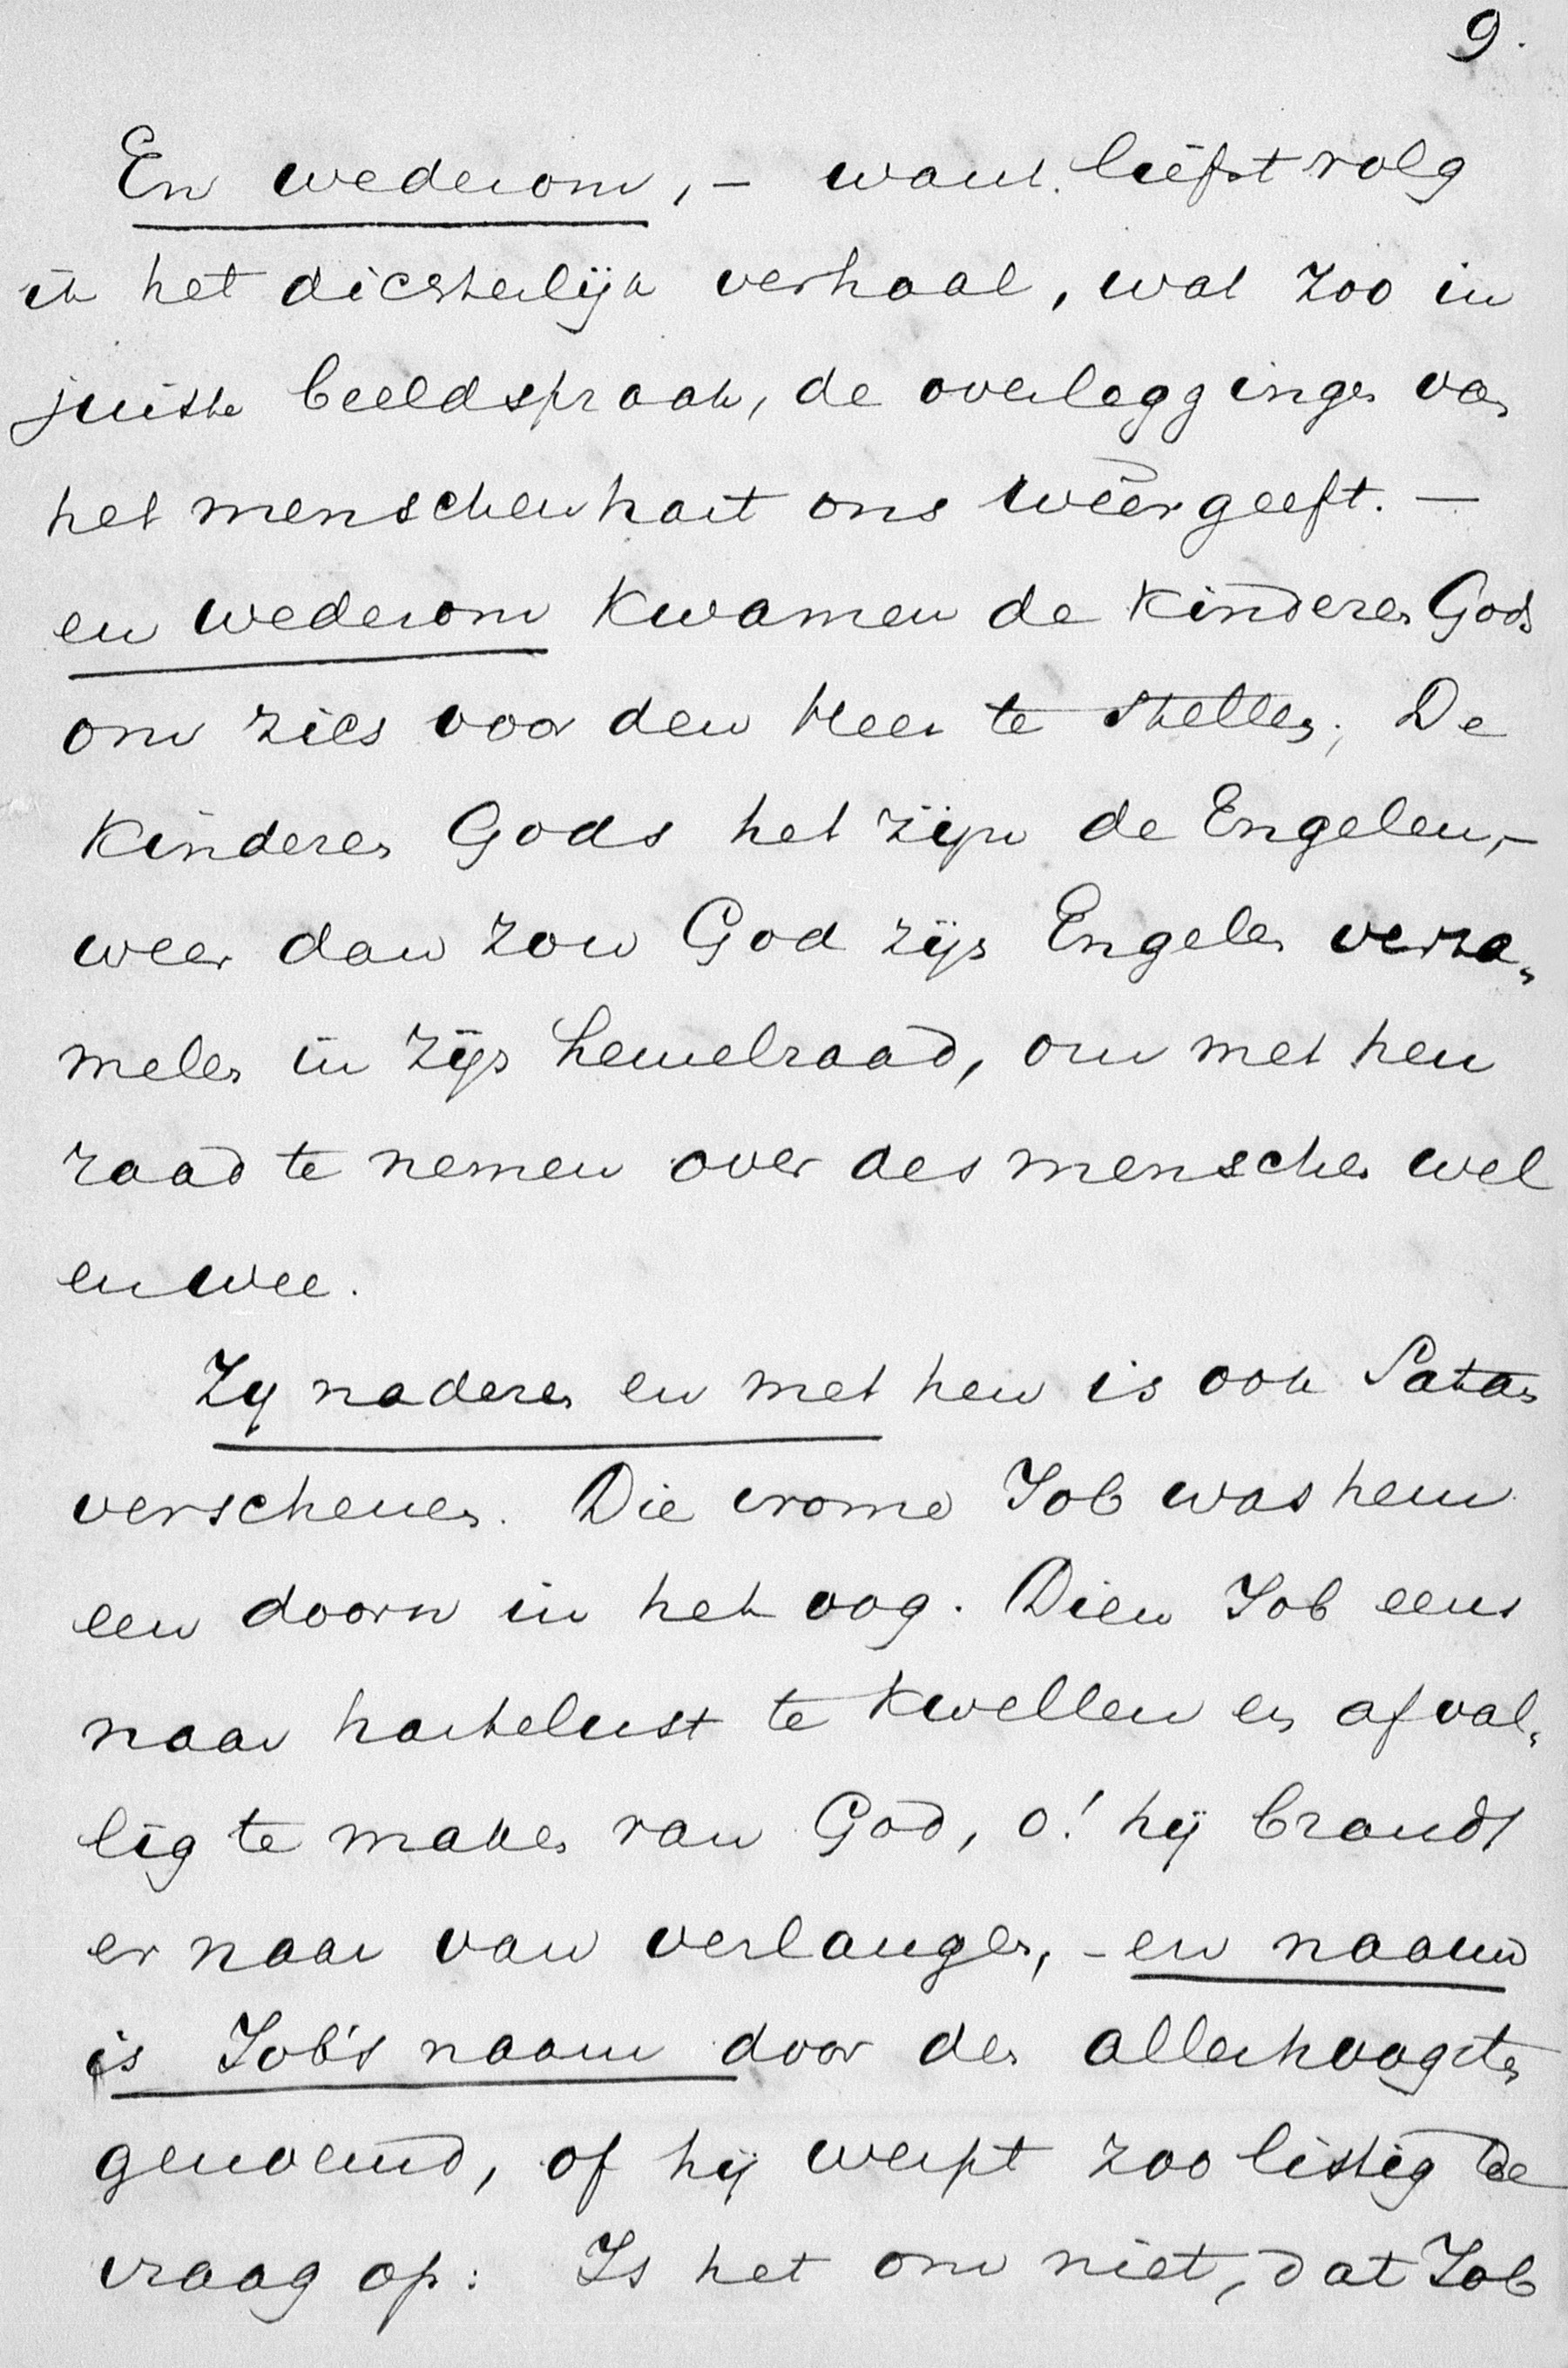 9.
En wederom, – want liefst volg
ik het dichterlijk verhaal, wat zoo in
juiste beeldspraak, de overleggingen van
het menschenhart ons wêergeeft. –
en wederom kwamen de kinderen Gods
om zich voor den Heer te stellen; De
kinderen Gods het zijn de Engelen, –
weer dan zou God zijn Engelen verza„
melen in zijn hemelraad, om met hen
raad te nemen over des menschen wel
en wee.
Zij naderen en met hen is ook Satan
verschenen. Die vrome Job was hem
een doorn in het oog. Dien Job eens
naar hartelust te kwellen en afval„
lig te maken van God, o! hij brandt
er naar van verlangen, – en naauw
is Job's naam door den allerhoogsten
genoemd, of hij werpt zoo listig de
vraag op: Is het om niet, dat Job